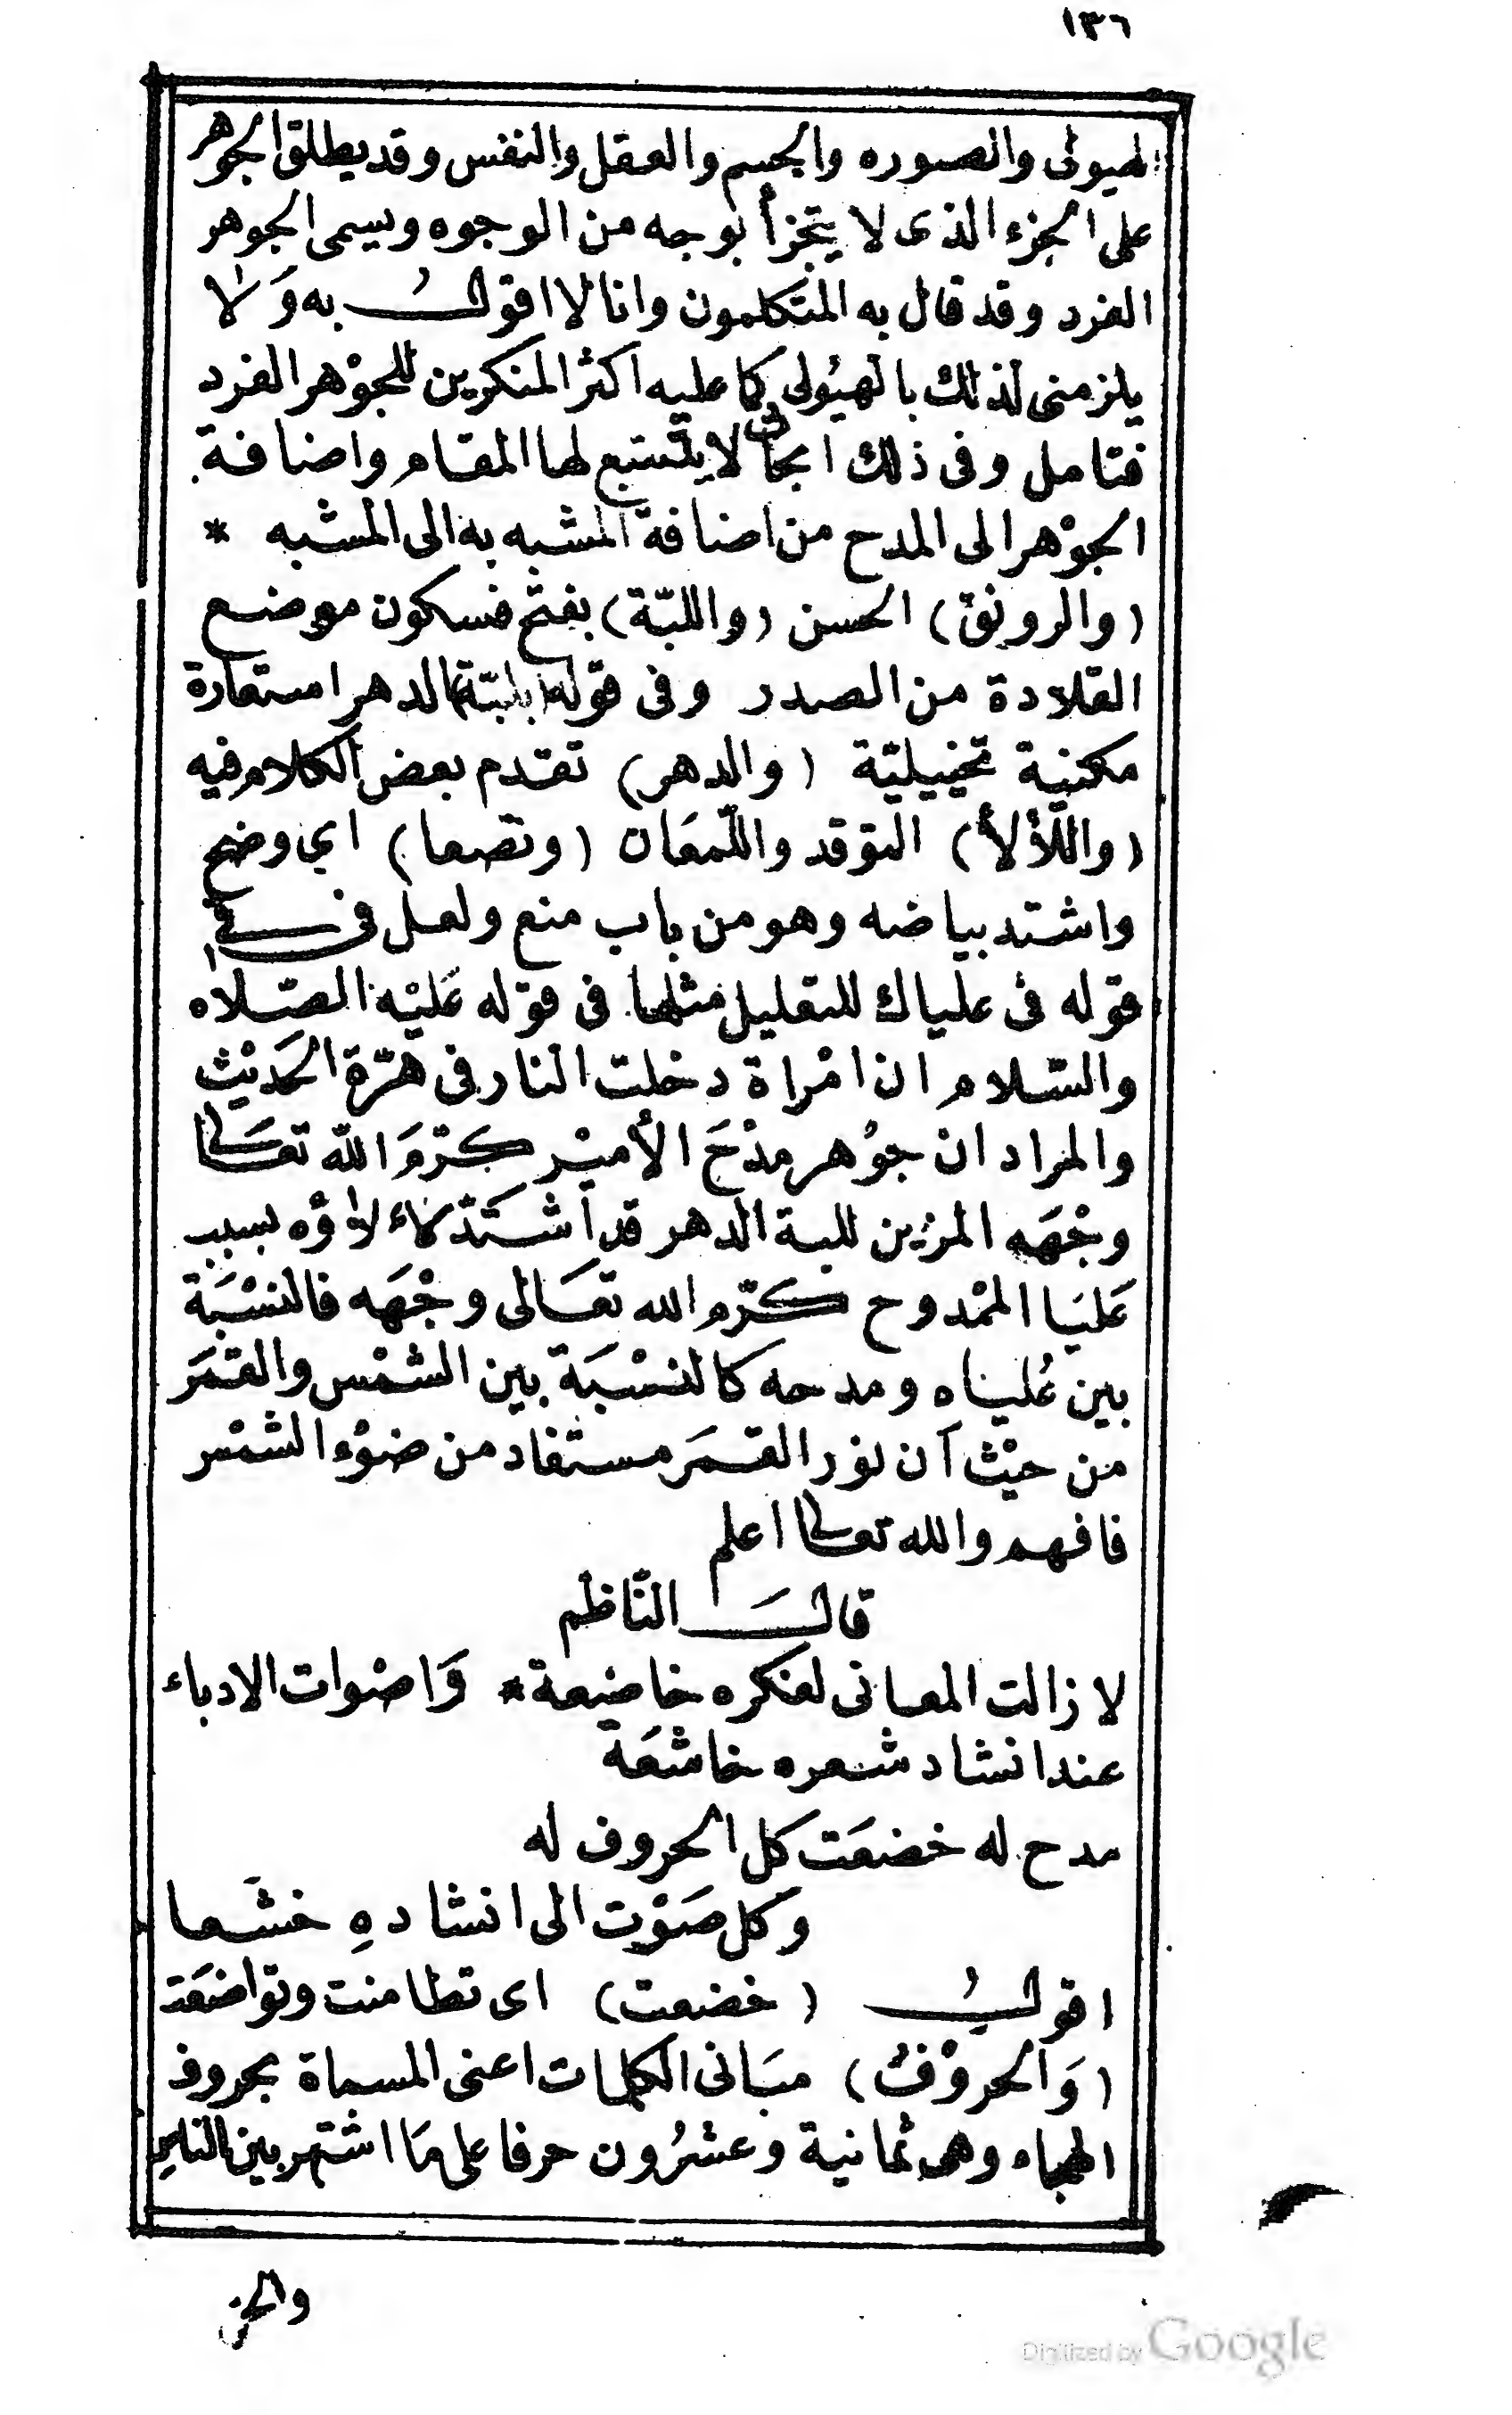 ١٣٦
الهيولى والصوره والجسم والعقل والنفس وقد يطلق الجوهر
على الجزء الذى لا يتجزأ بوجه من الوجوه ويسمى الجوهر
الفرد وقد قال به المتكلمون وانا لا اقولُ به وَلا
يلزمنى لذلك بالهيُولى كما عليه اكثر المنكرين للجوْهر الفرد
فتامل وفى ذلك ابحاث لا يتسع لها المقام واضافة
الجوْهر الى المدح من اضافة المشبه به الى المشبه *
(والرونق) الحسن (واللبّة) بفتح فسكون موضع
القلادة من الصدر وفى قوله (بلبّة) الدهر استعارة
مكنية تخييليّة (والدهر) تقدم بعض الكلام فيه
(واللّألأ) التوقد واللّمعَان (ونصعا) اي وضح
واشتد بياضه وهو من باب منع ولعل فى فى
قوله فى علياك للتعليل مثلها فى قوله عَليْه الصّلاه
والسّلام ان امْراة دخلت النار فى هرّة الحَديْث
والمراد ان جوُهر مدْحَ الأميْر كرّمَ الله تعَالى
وجْهَه المزين للبة الدهر قد اشتَدّ لألاؤه بسبب
عَليَا الممْدوح كرّم الله تعَالى وجْهَه فالنسْبَة
بين عُليناه ومدحه كالنسْبَة بين الشمْس والقمَر
من حيْث أن نور القمَر مستفاد من ضوْء الشمْس
فافهم والله تعالى اعلم
قالَ النّاظم
لا زالت المعانى لفكره خاضعة * وَاصْوات الادباء
عند انشاد شعره خاشعَة
مدح له خضعَت كل الحروف له
وكل صَوْت الى انشادهِ خشَعا
اقولُ (خضعت) اى تطامنت وتواضعَت
(وَالحروْفُ) مبَانى الكلمات اعنى المسماة بحروف
الهجاء وهى ثمانية وعشرُون حرفا على مَا اشتهر بين الناس